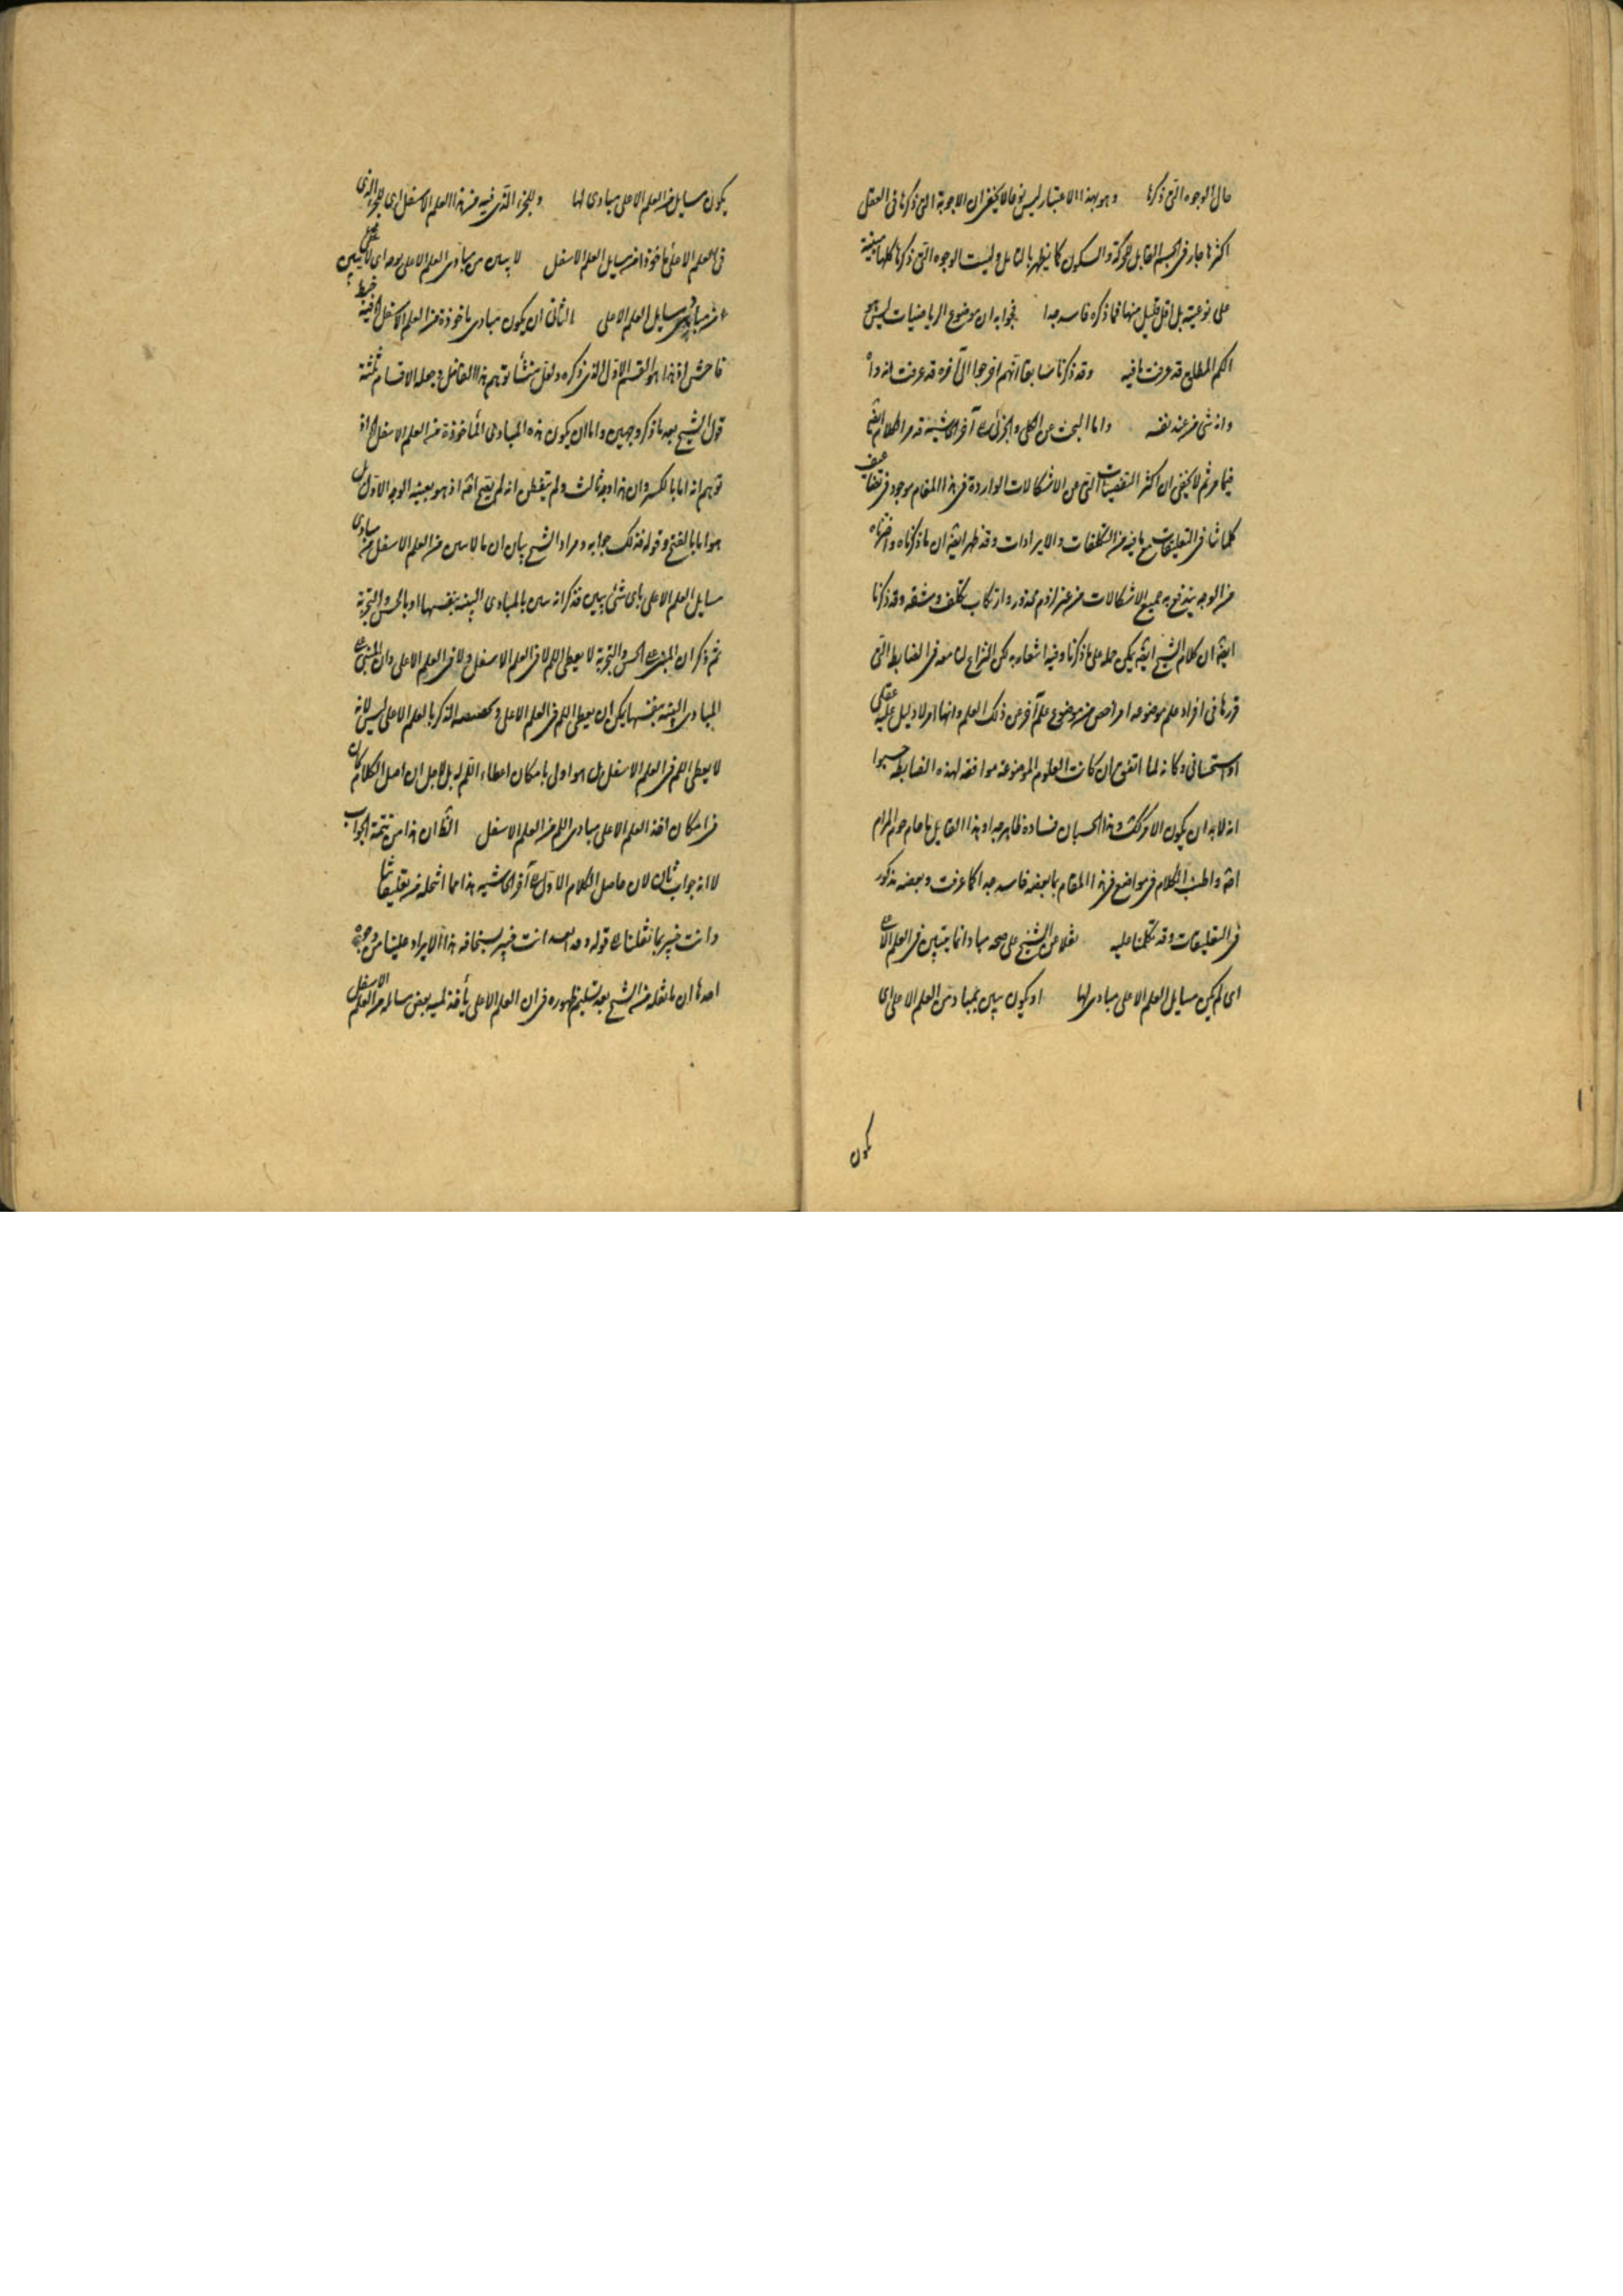 حال الوجوه التی ذكرها وهو بهذا الاعتبار ليس نوعا لا يخفی ان الاجوبة التی ذكرها فی العقل
اكثرها جار فی الجسم القابل للحركة والسكون كما يظهر بالتامل وليست الوجوه التی ذكرها كلها مبنية
علی نوعيته بل اقل قليل منها فما ذكره فاسد جدا فجوابه ان موضوع الرياضيات ليس هو
الكم المطلق قد عرفت ما فيه وقد ذكرنا سابقا انهم اخرجوا الی آخره قد عرفت انه
وانه شی فرعند نفسه واما البحث عن الكلی والجزئی آخر الحاشية قد مر الكلام
فيما مر ثم لا يخفی ان اكثر التفصيات التی عن الاشكالات الواردة فی هذا المقام موجود فی تضاعيف
كلماتنا فی التعليقات مع ما فيه من التكلفات والايرادات وقد ظهر ايضا ان ما ذكرناه واخترناه
من الوجه يندفع به جميع الاشكالات من غير لزوم محذور وارتكاب تكلف ومشقة وقد ذكرنا
ايضا ان كلام الشيخ ايضا يمكن حمله علی ما ذكرنا وفيه اشعار به لكن النزاع لنا معه فی الضابط التی
قررها فی افراد علم موضوعه امر اخص من موضوع علم آخر عن ذلك العلم وانها امر لا دليل عليه عقلی
او استحسانی وكانه لما اتفق ان كانت العلوم الموضوعة موافقة لهذه الضابطة حسبوا
انه لابد ان يكون الامر كذلك وهذا الحسبان فساده ظاهر جدا وهذا القايل ما حام حوم المرام
اصلا واطنب الكلام فی مواضع فی هذا المقام بما بعضه فاسد جدا كما عرفت وبعضه مذكور
فی التعليقات وقد تكلمنا عليه نقلا من الشيخ علی صحة مبادا انما يتبين فی العلم
ای لم يكن مسايل العلم الاعلی مبادی لها او يكون يبين بمبادی العلم الاعلی ای
يكون
يكون مسايل من العلم الاعلی مبادی لها وللجزء الذی فيه من هذا العلم الاسفل ای للجزء الذی
فی العلم الاعلی ماخوذا من مسايل العلم الاسفل لا يبين من مبادی العلم الاعلی بوجه ای لا يبين
من مبادی مسايل العلم الاعلی الثانی ان يكون مبادی ماخوذة من العلم الاسفل فيه خبط
فاحش اذ هذا هو القسم الاول الذی ذكره ولعل منشأ توهم هذا الفاضل وجعله الاقسام ثلثة
قول الشيخ بعد ما ذكر وجهين واما ان يكون هذه المبادی المأخوذة من العلم الاسفل اذ
توهم انه اما بالكسر وان هذا وجه ثالث ولم يتفطن انه لم يصح اصلا اذ هو بعينه الوجه الاول بل
هو اما بالفتح وقوله فذلك جوابه ومراد الشيخ بيان ان ما لا يبين من العلم الاسفل من مبادی
مسايل العلم الاعلی بای شئ يبين فذكر انه يبين بالمبادی البينة بنفسها او بالحس والتجربة
ثم ذكر ان المبين الحس والتجربة لا يعطی اللم لا فی العلم الاسفل ولا فی العلم الاعلی وان المبين
المبادی البينة بنفسها يمكن ان يعطی اللم فی العلم الاعلی وتخصيصه الذكر بالعلم الاعلی ليس لانه
لا يعطی اللم فی العلم الاسفل بل هو اولی بامكان اعطاء اللم له بل لاجل ان اصل الكلام كان
فی امكان اخذ العلم الاعلی مبادی اللم من العلم الاسفل الظ ان هذا من تتمة الجواب
لا انه جواب ثان لان حاصل الكلام الاول آخر الحاشية هذا مما انتحله من تعليقاتنا
وانت خبير بما نقلنا قوله وفيه بعد انت خبير بسخافة هذا الايراد علينا من وجوه
احدها ان ما نقله من الشيخ بعد تسليم ظهوره فی ان العلم الاعلی يأخذ لمية بعض مسائله من العلم الاسفل